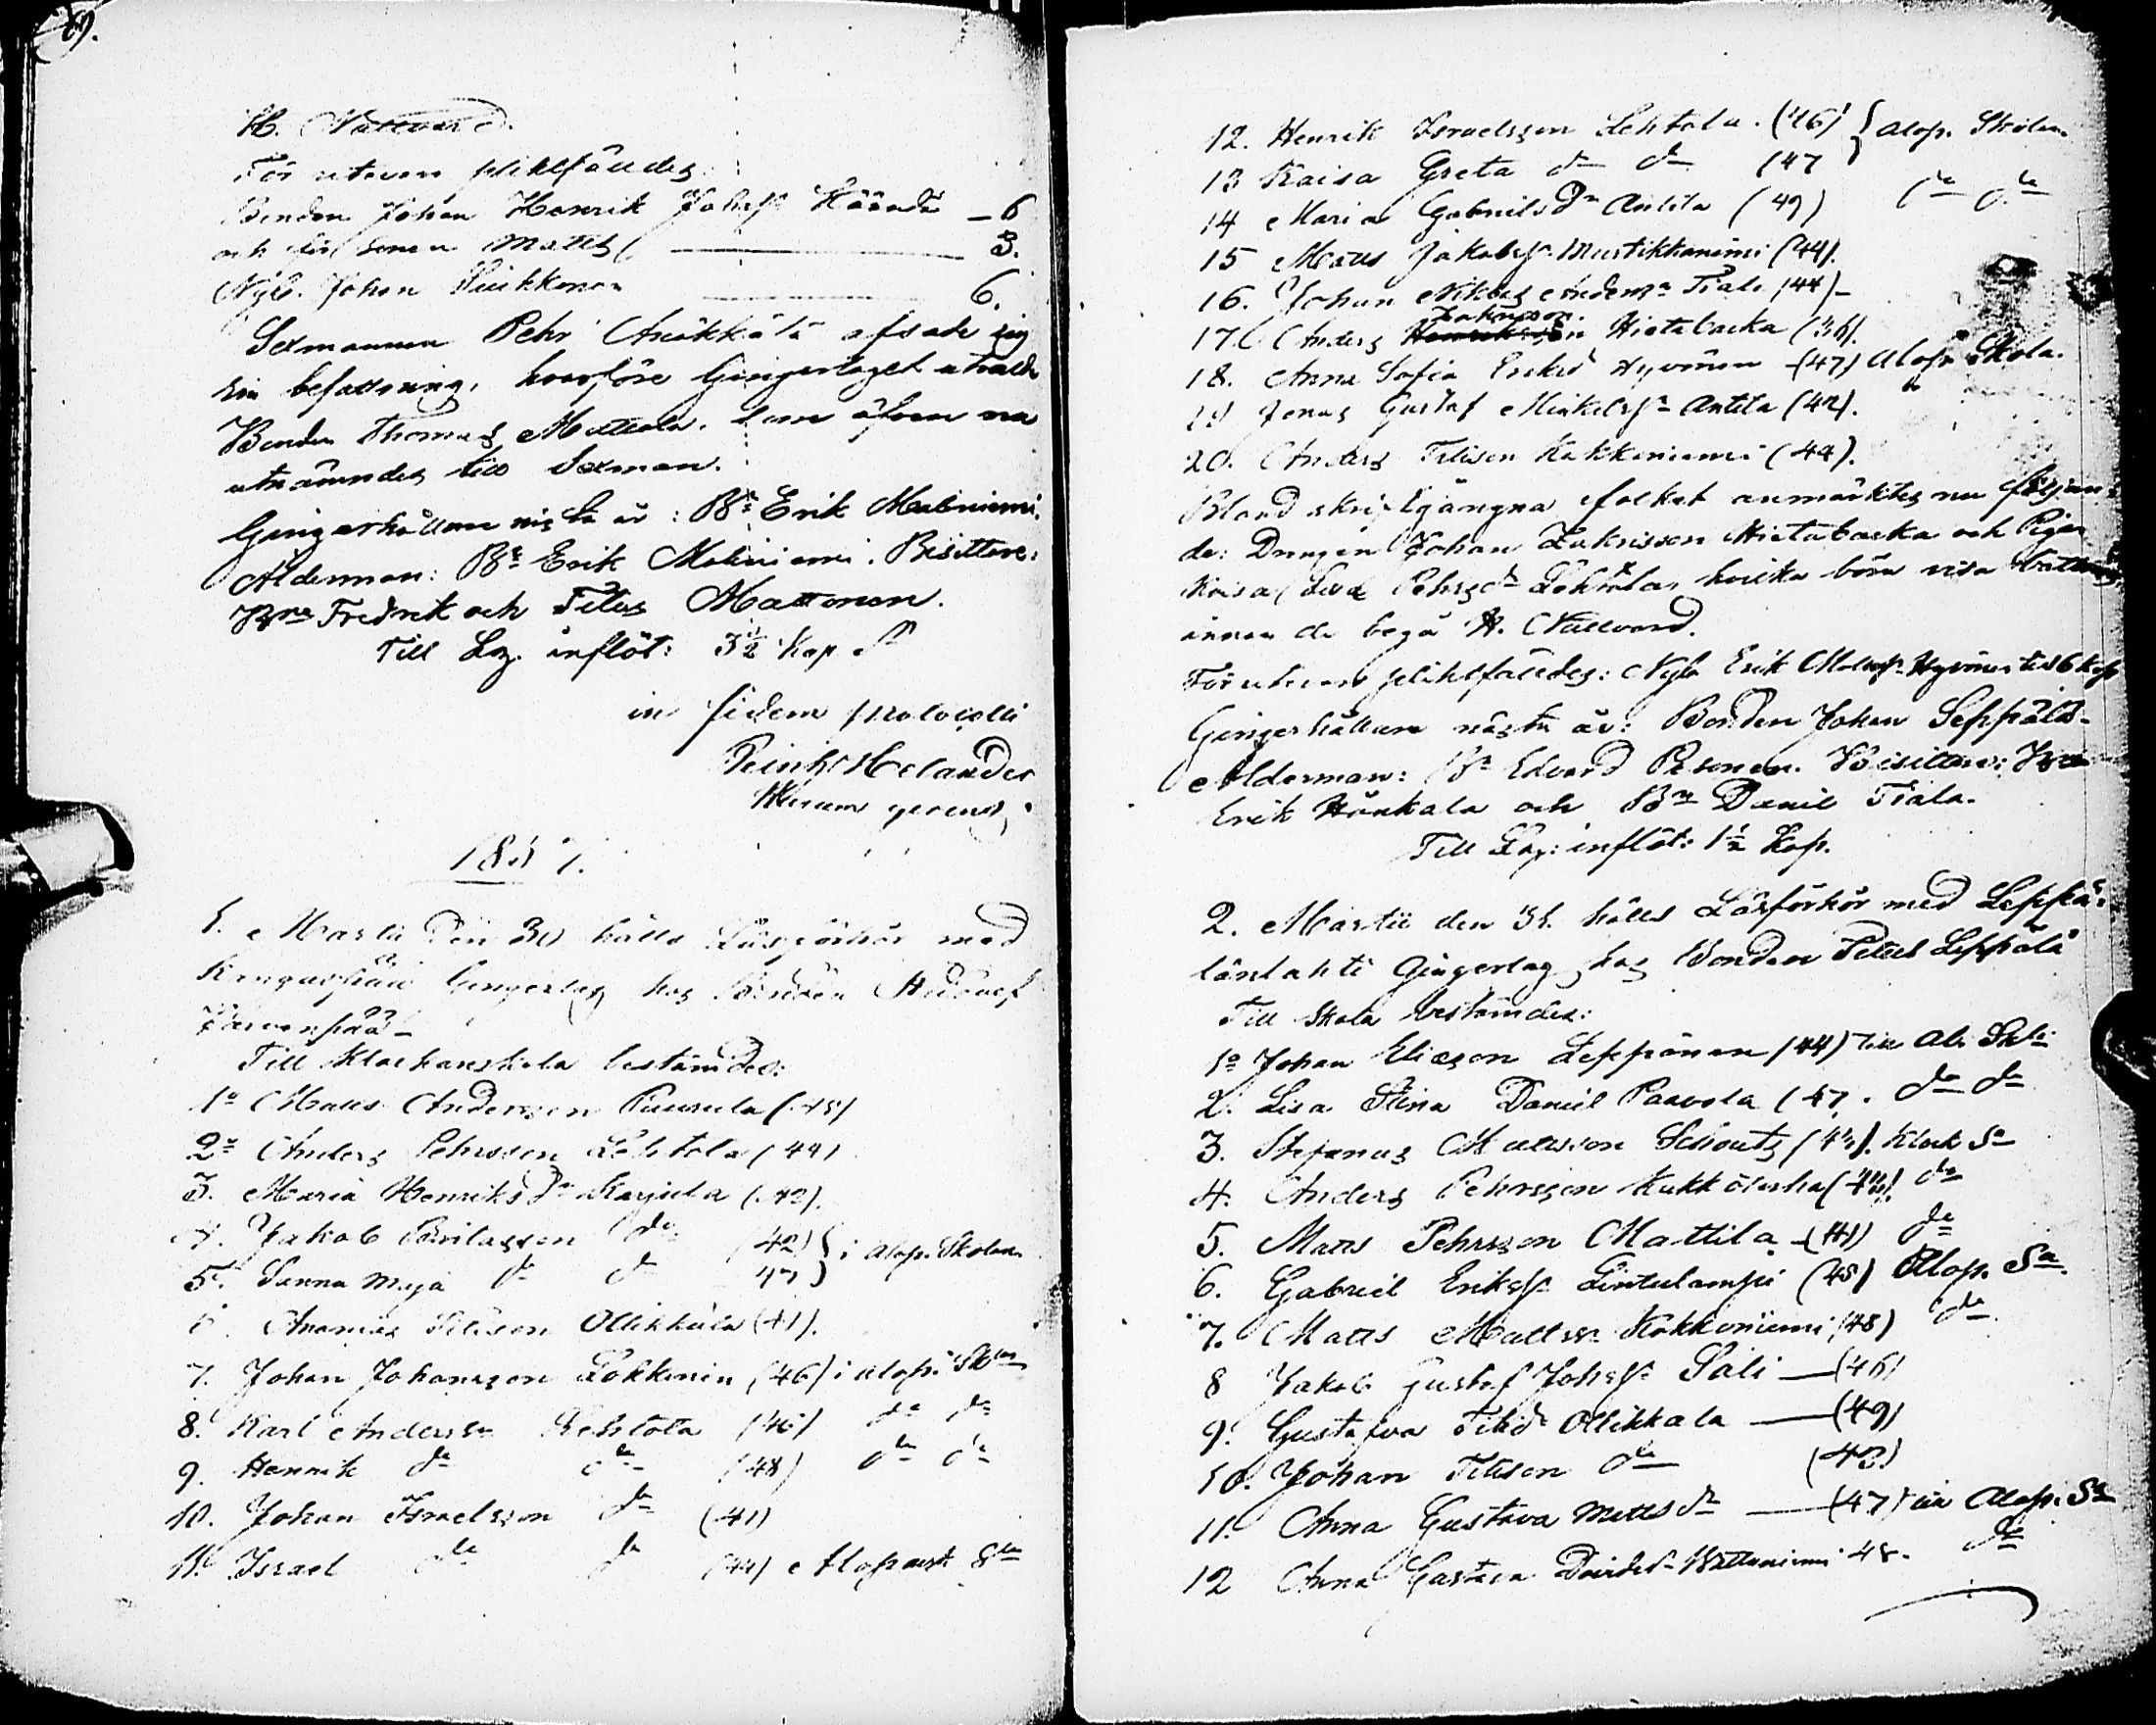 H. Nattvard.
För utevaro pliktfäldes:
Bonden Johan Henrik Johss Höändä — 6
och för sonen Matts — 3.
Nyb. Johan Kuikkonen — 6.
Sexmannen Pehr Anökkälä afsade sig
sin befattning, hvarföre Gingerlaget utvalde
Bonden Thomas Mattola, som äfven nu
utnämndes till Sexman.
Gingerhållare nästa år: Bn Erik Maliniemi.
Ålderman: Bn Erik Maliniemi. Bisittare:
Bne Fredrik och Titus Mattonen.
Till Lz. inflöt: 3½ Kop. Sr
in fidem protocolli
Reinh. Helander
gerens.
1857.
1. Martii den 30 hålls Läsförhör med
Gingerlag hos Bonden
Tarvonpää
Till Klockarskola bestämdes:
1o Matts Andersson Puurula (45)
2o Anders Pehrsson Lehtola (44)
3. Maria Henriksdr Karjula (42).
4. Jakob do (42) } i alop. Skolan
5. Sanna Maja do do 47 }
6. Ananias Titison Ollikkala (41).
7. Johan Johansson Lokkinen (46) i alop. Skln
8. Karl Anderssn Lehtola (46) do do
9. Henrik do do (48) do do
10. Johan Israelsson do (41)
11. Israel do do (44) Alopaeisk Sla
12. Henrik Israelsson Lehtola. (46) } alop. Skolan
13 Kaisa Greta do do (47
14 Maria Gabrielsdr Antila (49) do do
15 Matts Jakobss. Mustikkaniemi (44).
16. Johan Niklas Anderssn Tiala (44) —
Zakrisson.
17. Anders Henriksson Hietabacka (36).
18. Anna Sofia Eriksd Hyvönen — (47) Alop. Skola.
19 Jonas Gustaf Mickelssn Antila (42).
20. Anders Titison Kokkoniemi (44).
Bland skriftgångna folket anmärktes nu följan-
de: Drengen Johan Zakrisson Hietabacka och Pigan
Kaisa Lisa Pehrsdr Lehtola, hvilka böra visa bättring
innan de begå H. Nattvard.
För utevaro pliktfäldes: Nyb Erik Matss. Hyvönen till 6 kop
Gingerhållare nästa år: Bonden Johan Seppälä —
Ålderman: Bn Edvard Pesonen. Bisittare: Bn
Erik Hönkala och Bn Daniel Tiala.
Till Lz: inflöt: 1½ Kop.
2. Martii den 31. hålls Läsförhör med Leppä-
länlahti Gingerlag hos Bonden Titus Leppälä
Till Skola bestämdes:
1o Johan Eliasson Leppänen (44) till Al. Skl:
2. Lisa Stina Daniel Paavola (47. do do
3. Stefanus Mattsson Schoutz (43). Klock Sa
4. Anders Pehrsson Kukkolanha do
5. Matts Pehrsson Mattila — (41) do
6. Gabriel Erikss. Lintulampi (45) Alop. Sa.
7. Matts Mattssn Kokkoniemi (48) do
8 Jakob Gustaf Johss. Sali — (46)
9. Gustafva Titid Ollikkala — (49)
10. Johan Titison do (42)
11. Anna Gustava Mattsdr — (47) till Alop. Sa
12 Anna Gustava Davidsd 48. do